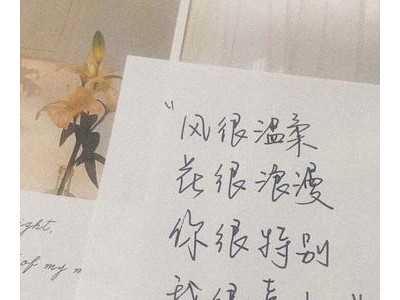 “风很温柔
花很浪漫
你很特别
我很喜
ight,
of my m